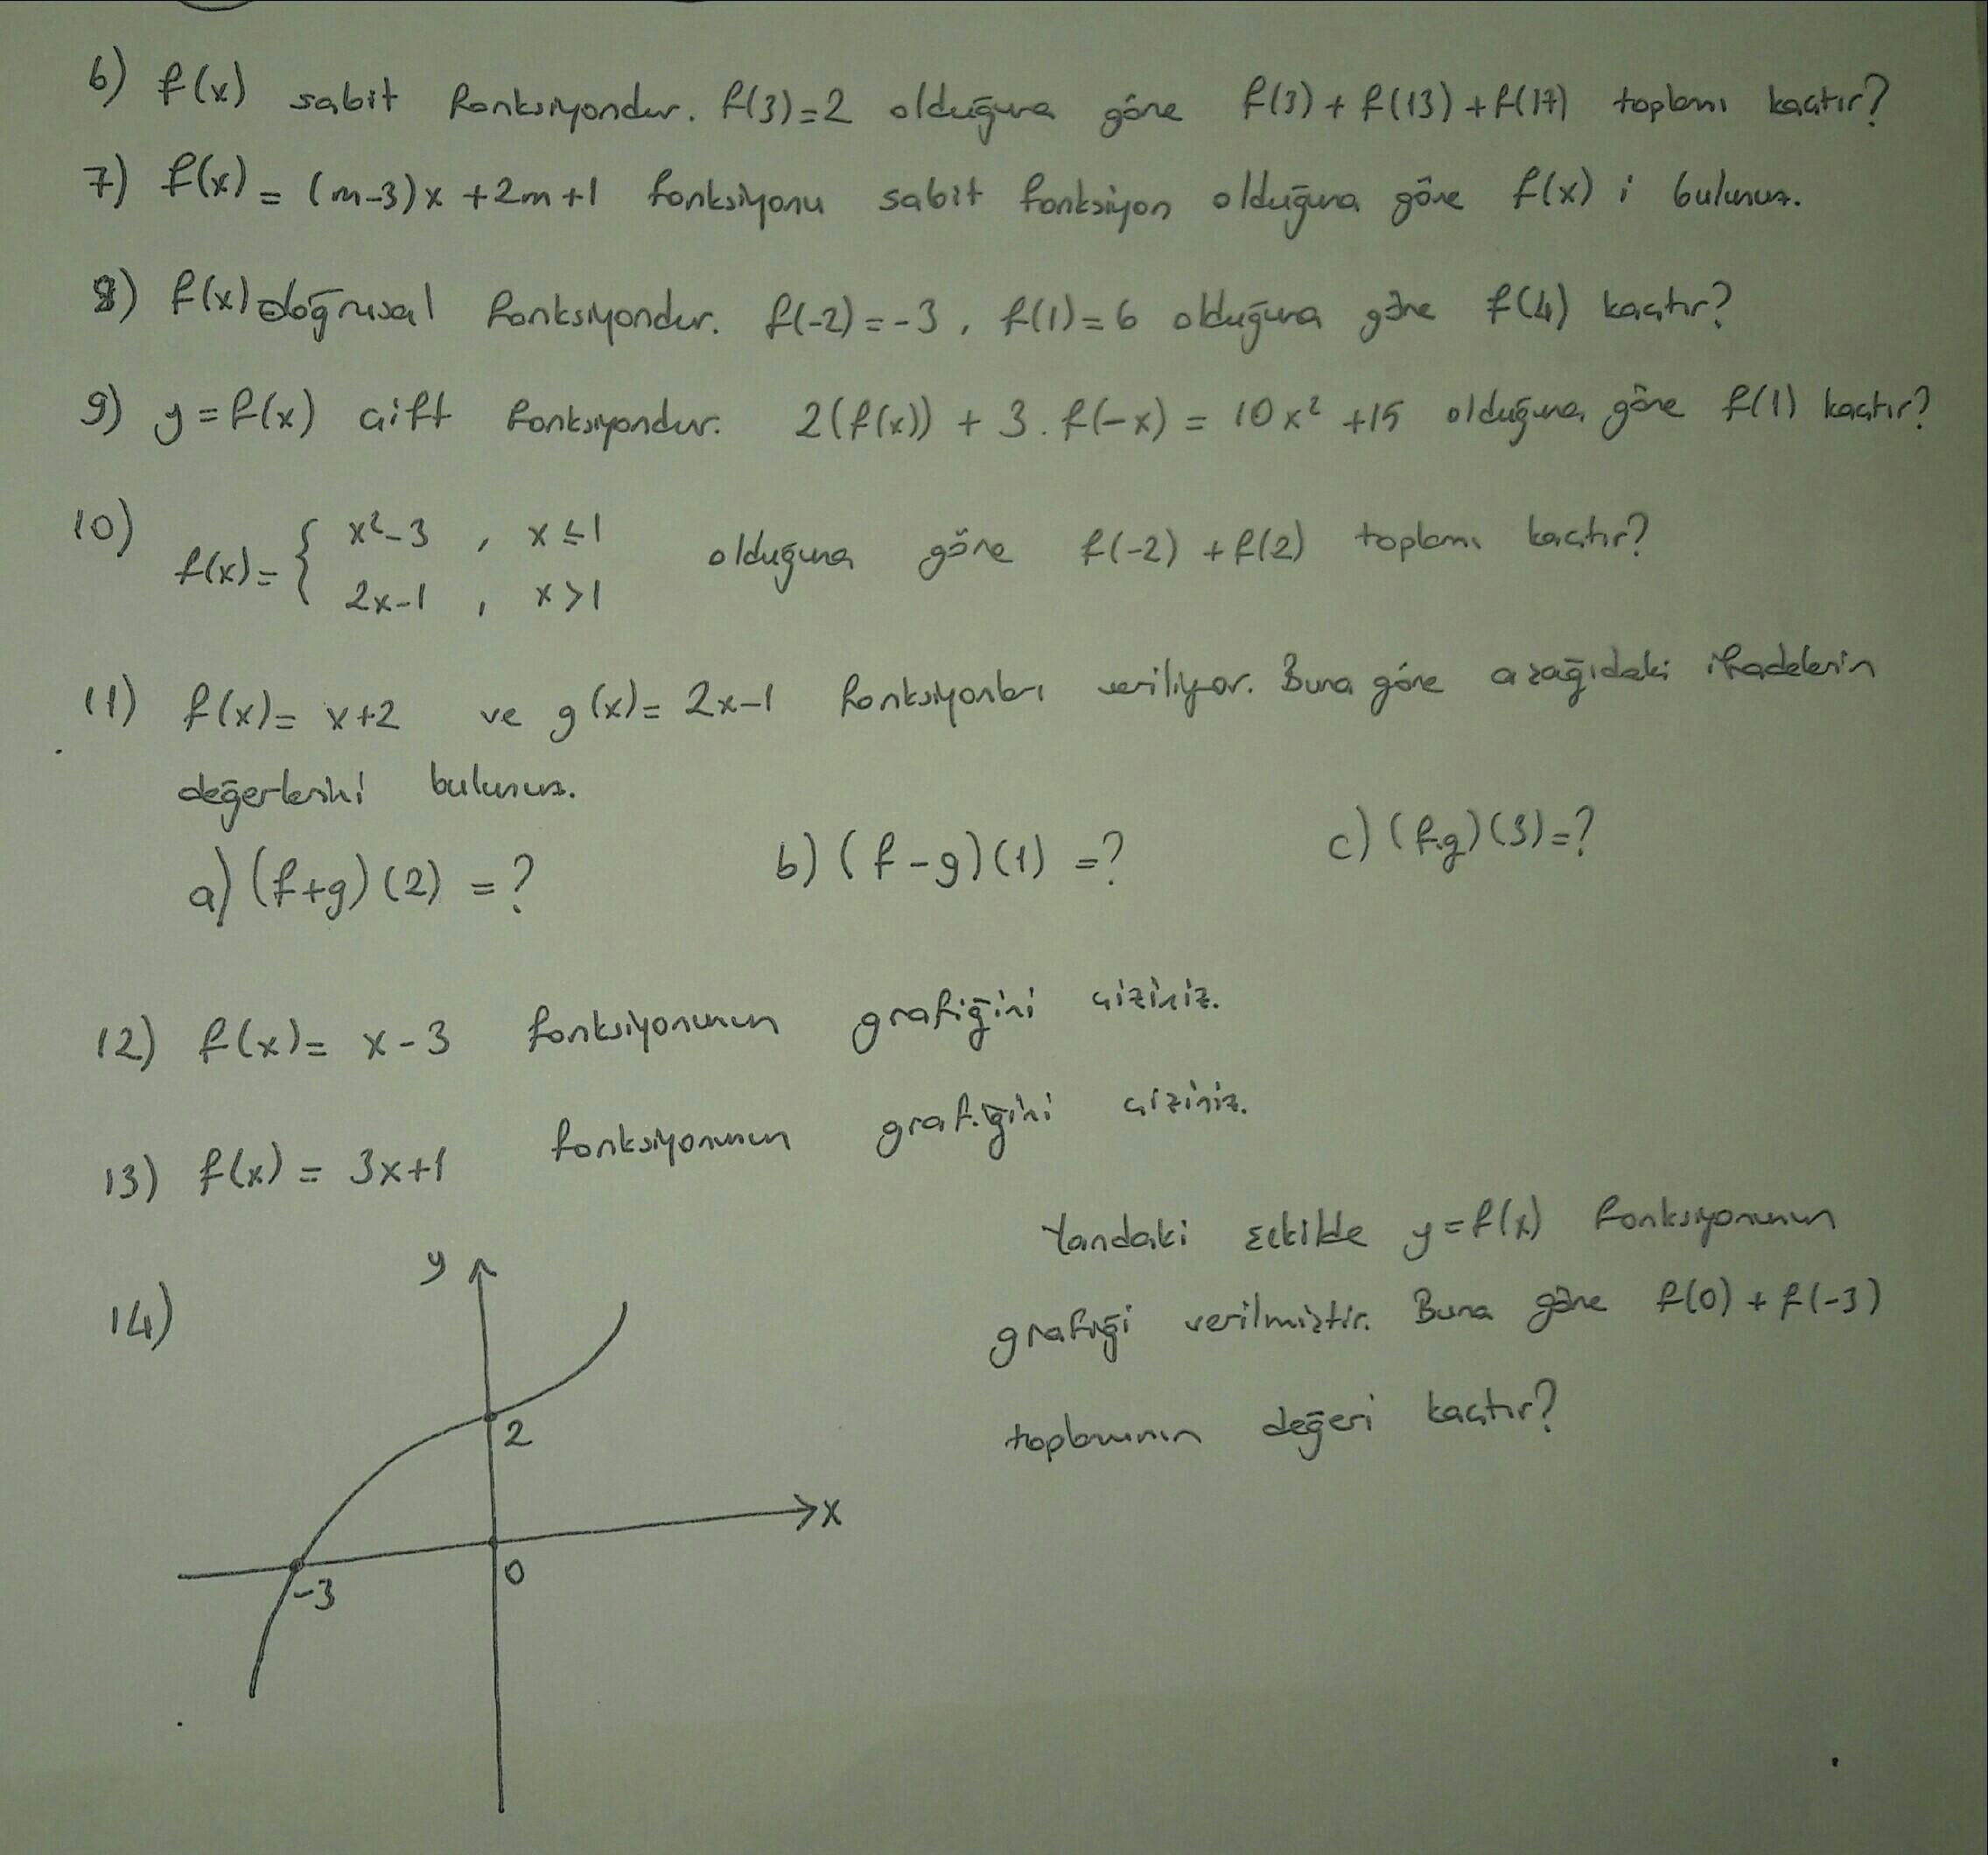 6) f(x) sabit fonksiyondur. f(3)=2 olduğuna göre f(3) + f(13) + f(17) toplamı kaçtır?
7) f(x) = (m-3)x + 2m + 1 fonksiyonu sabit fonksiyon olduğuna göre f(x) i bulunuz.
8) f(x) doğrusal fonksiyondur. f(-2) = -3, f(1) = 6 olduğuna göre f(4) kaçtır?
9) y = f(x) çift fonksiyondur. 2(f(x)) + 3.f(-x) = 10x² + 15 olduğuna göre f(1) kaçtır?
10) f(x) = { x²-3 , x ≤ 1
2x-1 , x > 1 olduğuna göre f(-2) + f(2) toplamı kaçtır?
11) f(x) = x+2 ve g(x) = 2x-1 fonksiyonları veriliyor. Buna göre aşağıdaki ifadelerin
değerlerini bulunuz.
a) (f+g)(2) = ? b) (f-g)(1) = ? c) (f.g)(3) = ?
12) f(x) = x-3 fonksiyonunun grafiğini çiziniz.
13) f(x) = 3x+1 fonksiyonunun grafiğini çiziniz.
14)
y
2
x
0
-3
Yandaki şekilde y = f(x) fonksiyonunun
grafiği verilmiştir. Buna göre f(0) + f(-3)
toplamının değeri kaçtır?